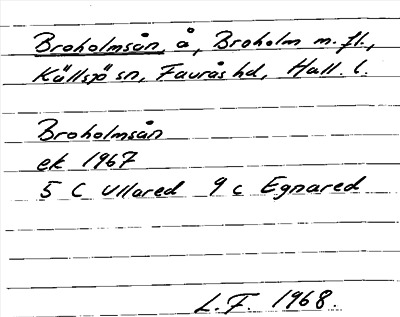 Broholmsån, å, Broholm m.fl.,
Källsjö sn, Faurås hd, Hall. l.
Broholmsån
ek 1967
5 C Ullared 9 c Egnared
L.F. 1968.